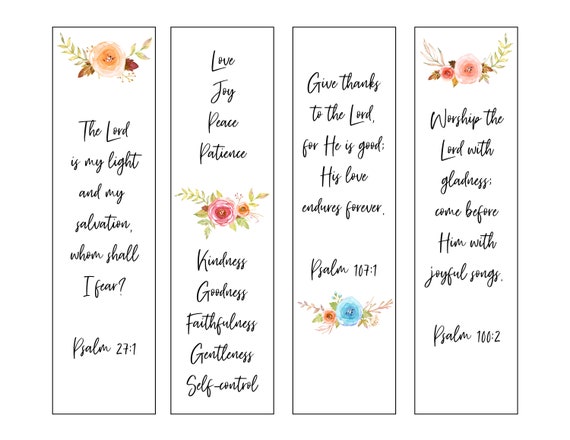 The Lord
is my light
and my
salvation,
whom shall
I fear?
Psalm 27:1
Love
Joy
Peace
Patience
Kindness
Goodness
Faithfulness
Gentleness
Self-control
Give thanks
to the Lord,
for He is good;
His love
endures forever.
Psalm 107:1
Worship the
Lord with
gladness;
come before
Him with
joyful songs.
Psalm 100:2